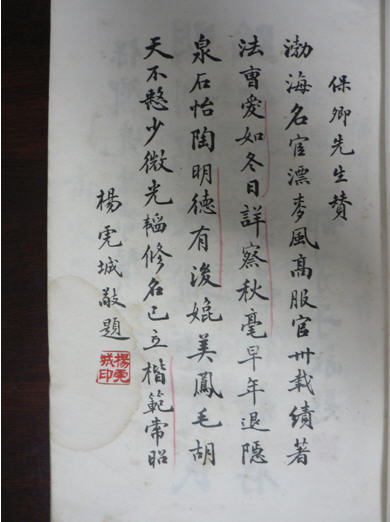 保卿先生贊
渤海名官漂麥風高服官卅載績著
法曹愛如冬日詳察秋毫早年退隱
泉石怡陶明德有後媲美鳳毛胡
天不憗少微光韜修名已立楷範常昭
楊虎城敬題
楊虎城印